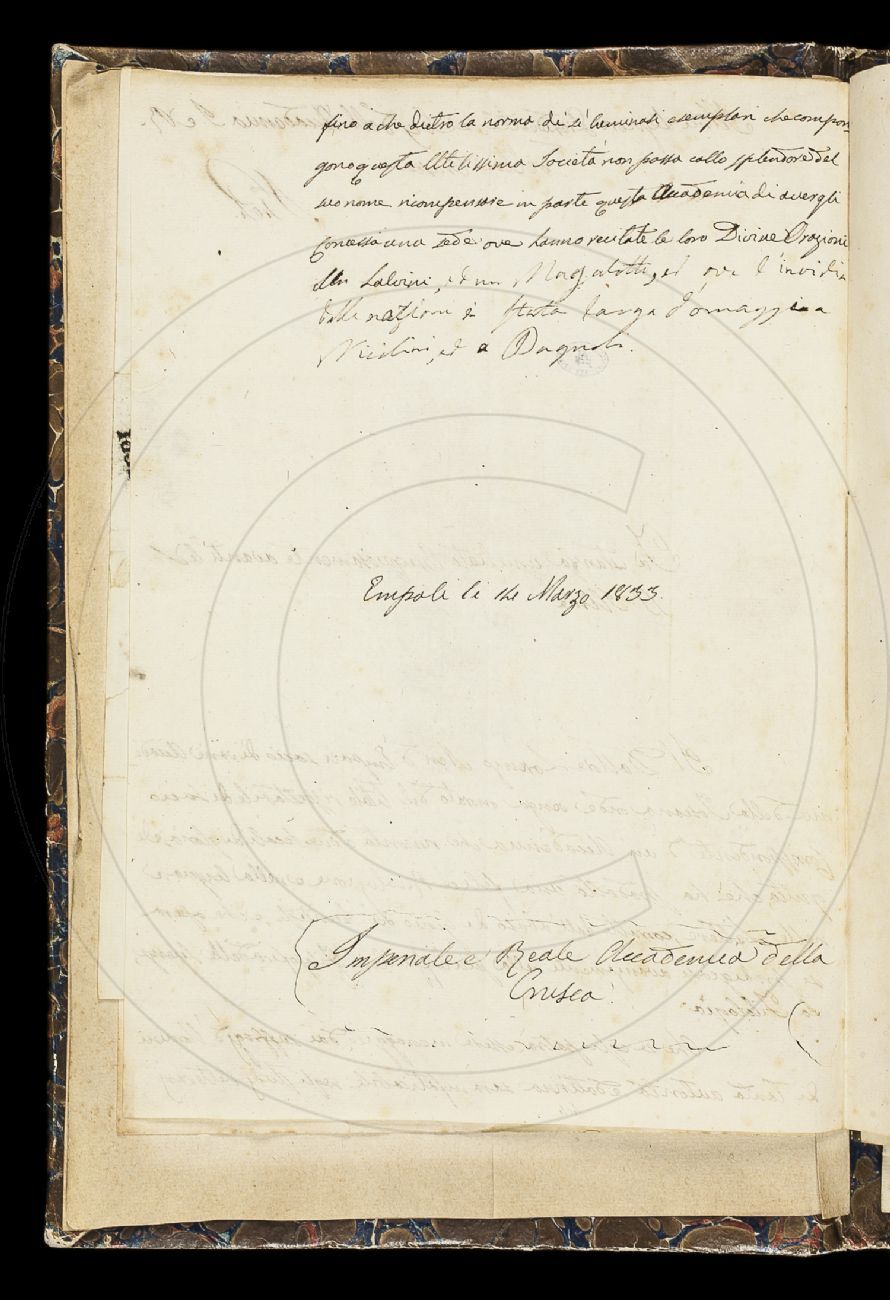 fino a che dietro la norma di sì luminosi esemplari che compon-
gono questa Utilissima Società non possa collo splendore del
suo nome ricompensare in parte questa Accademia di avergli
concessa una sede ove hanno recitate le loro Divine Orazioni
Un Salvini, ed un Magalotti, ed ove l'invidia
delle nazioni è stata larga d'omaggi a
Niccolini, ed a Bagnoli.
Empoli li 14 Marzo 1833.
Imperiale e Reale Accademia della
Crusca